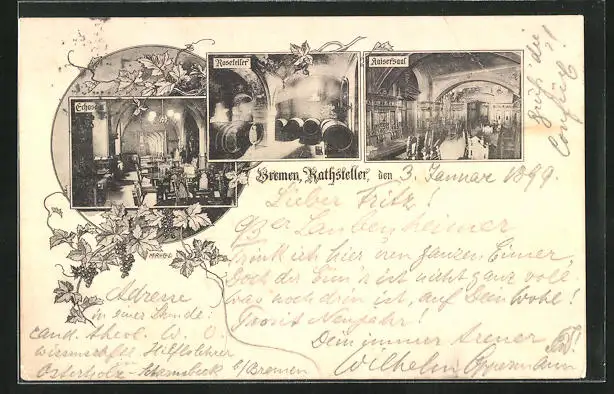 Echosaal
Rosekeller
Kaisersaal
Bremen, Rathskeller, den 3. Januar 1899.
Lieber Fritz!
93er Laubenheimer
Trink ich hier 'nen ganzen Eimer,
Doch der Eim'r ist nicht ganz voll.
Was noch drin ist, auf Dein Wohl!
Prosit Neujahr!
Dein immer treuer
Wilhelm Oppermann
Adresse
in einer Stunde:
cand. theol. W. O.
wissenschaftl. Hilfslehrer
Osterholz-Scharmbeck b/Bremen
Gruß die